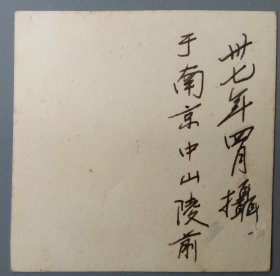 卅七年四月攝.
于南京中山陵前